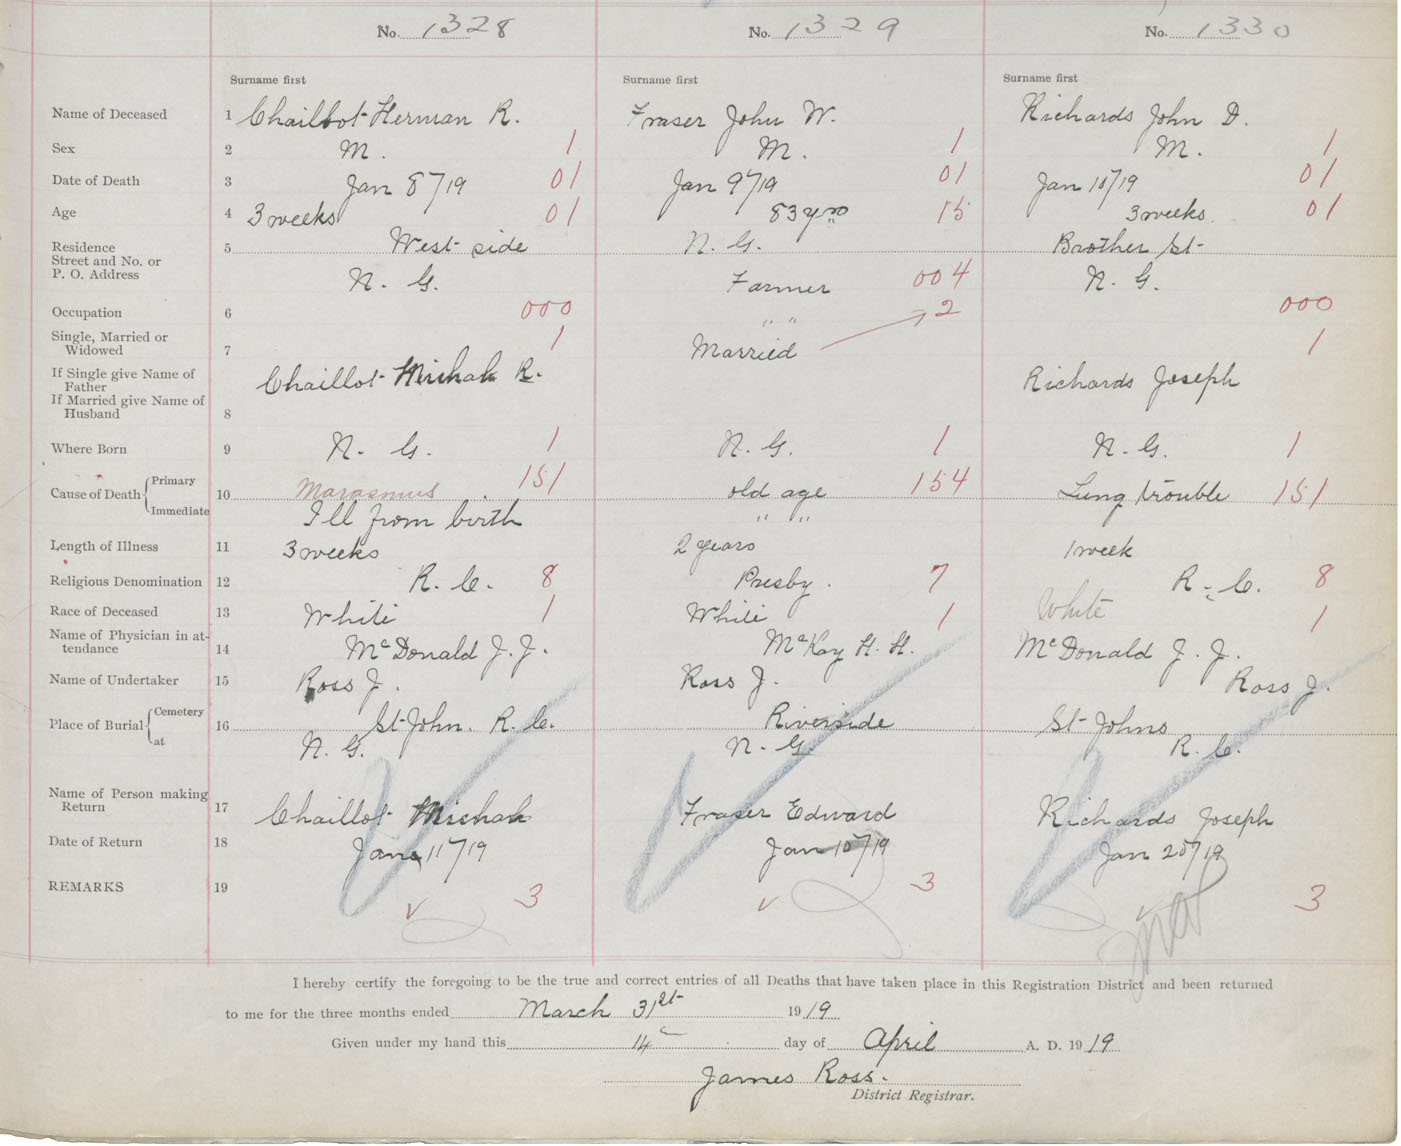 No. 1328 No. 1329 No. 1330
Surname first Surname first Surname first
Name of Deceased 1 Chaillot Herman R. Fraser John W. Richards John D.
Sex 2 M. 1 M. 1 M. 1
Date of Death 3 Jan 8"/19 01 Jan 9"/19 01 Jan 10"/19 01
Age 4 3 weeks 01 83 yrs 15 3 weeks. 01
Residence 5 West side N. G. Brother St
Street and No. or
P. O. Address N. G. Farmer 004 N. G.
Occupation 6 000 " " 2 000
Single, Married or
Widowed 7 1 Married 1
If Single give Name of
Father Chaillot R. Richards Joseph
If Married give Name of
Husband 8
Where Born 9 N. G. 1 N. G. 1 N. G. 1
Cause of Death Primary 10 Marasmus 151 old age 154 Lung trouble 151
Immediate Ill from birth " "
Length of Illness 11 3 weeks 2 years 1 week
Religious Denomination 12 R. C. 8 Presby. 7 R. C. 8
Race of Deceased 13 White 1 White 1 White 1
Name of Physician in at-
tendance 14 McDonald J. J. McKay H. H. McDonald J. J.
Name of Undertaker 15 Ross J. Ross J. Ross J.
Place of Burial Cemetery 16 St John. R. C. Riverside St Johns
at N. G. N. G. R. C.
Name of Person making
Return 17 Chaillot Fraser Edward Richards Joseph
Date of Return 18 Jan 11"/19 Jan 10"/19 Jan 20"/19
REMARKS 19 3 3 3
I hereby certify the foregoing to be the true and correct entries of all Deaths that have taken place in this Registration District and been returned
to me for the three months ended March 31st 1919
Given under my hand this 14 day of April A. D. 1919
James Ross.
District Registrar.